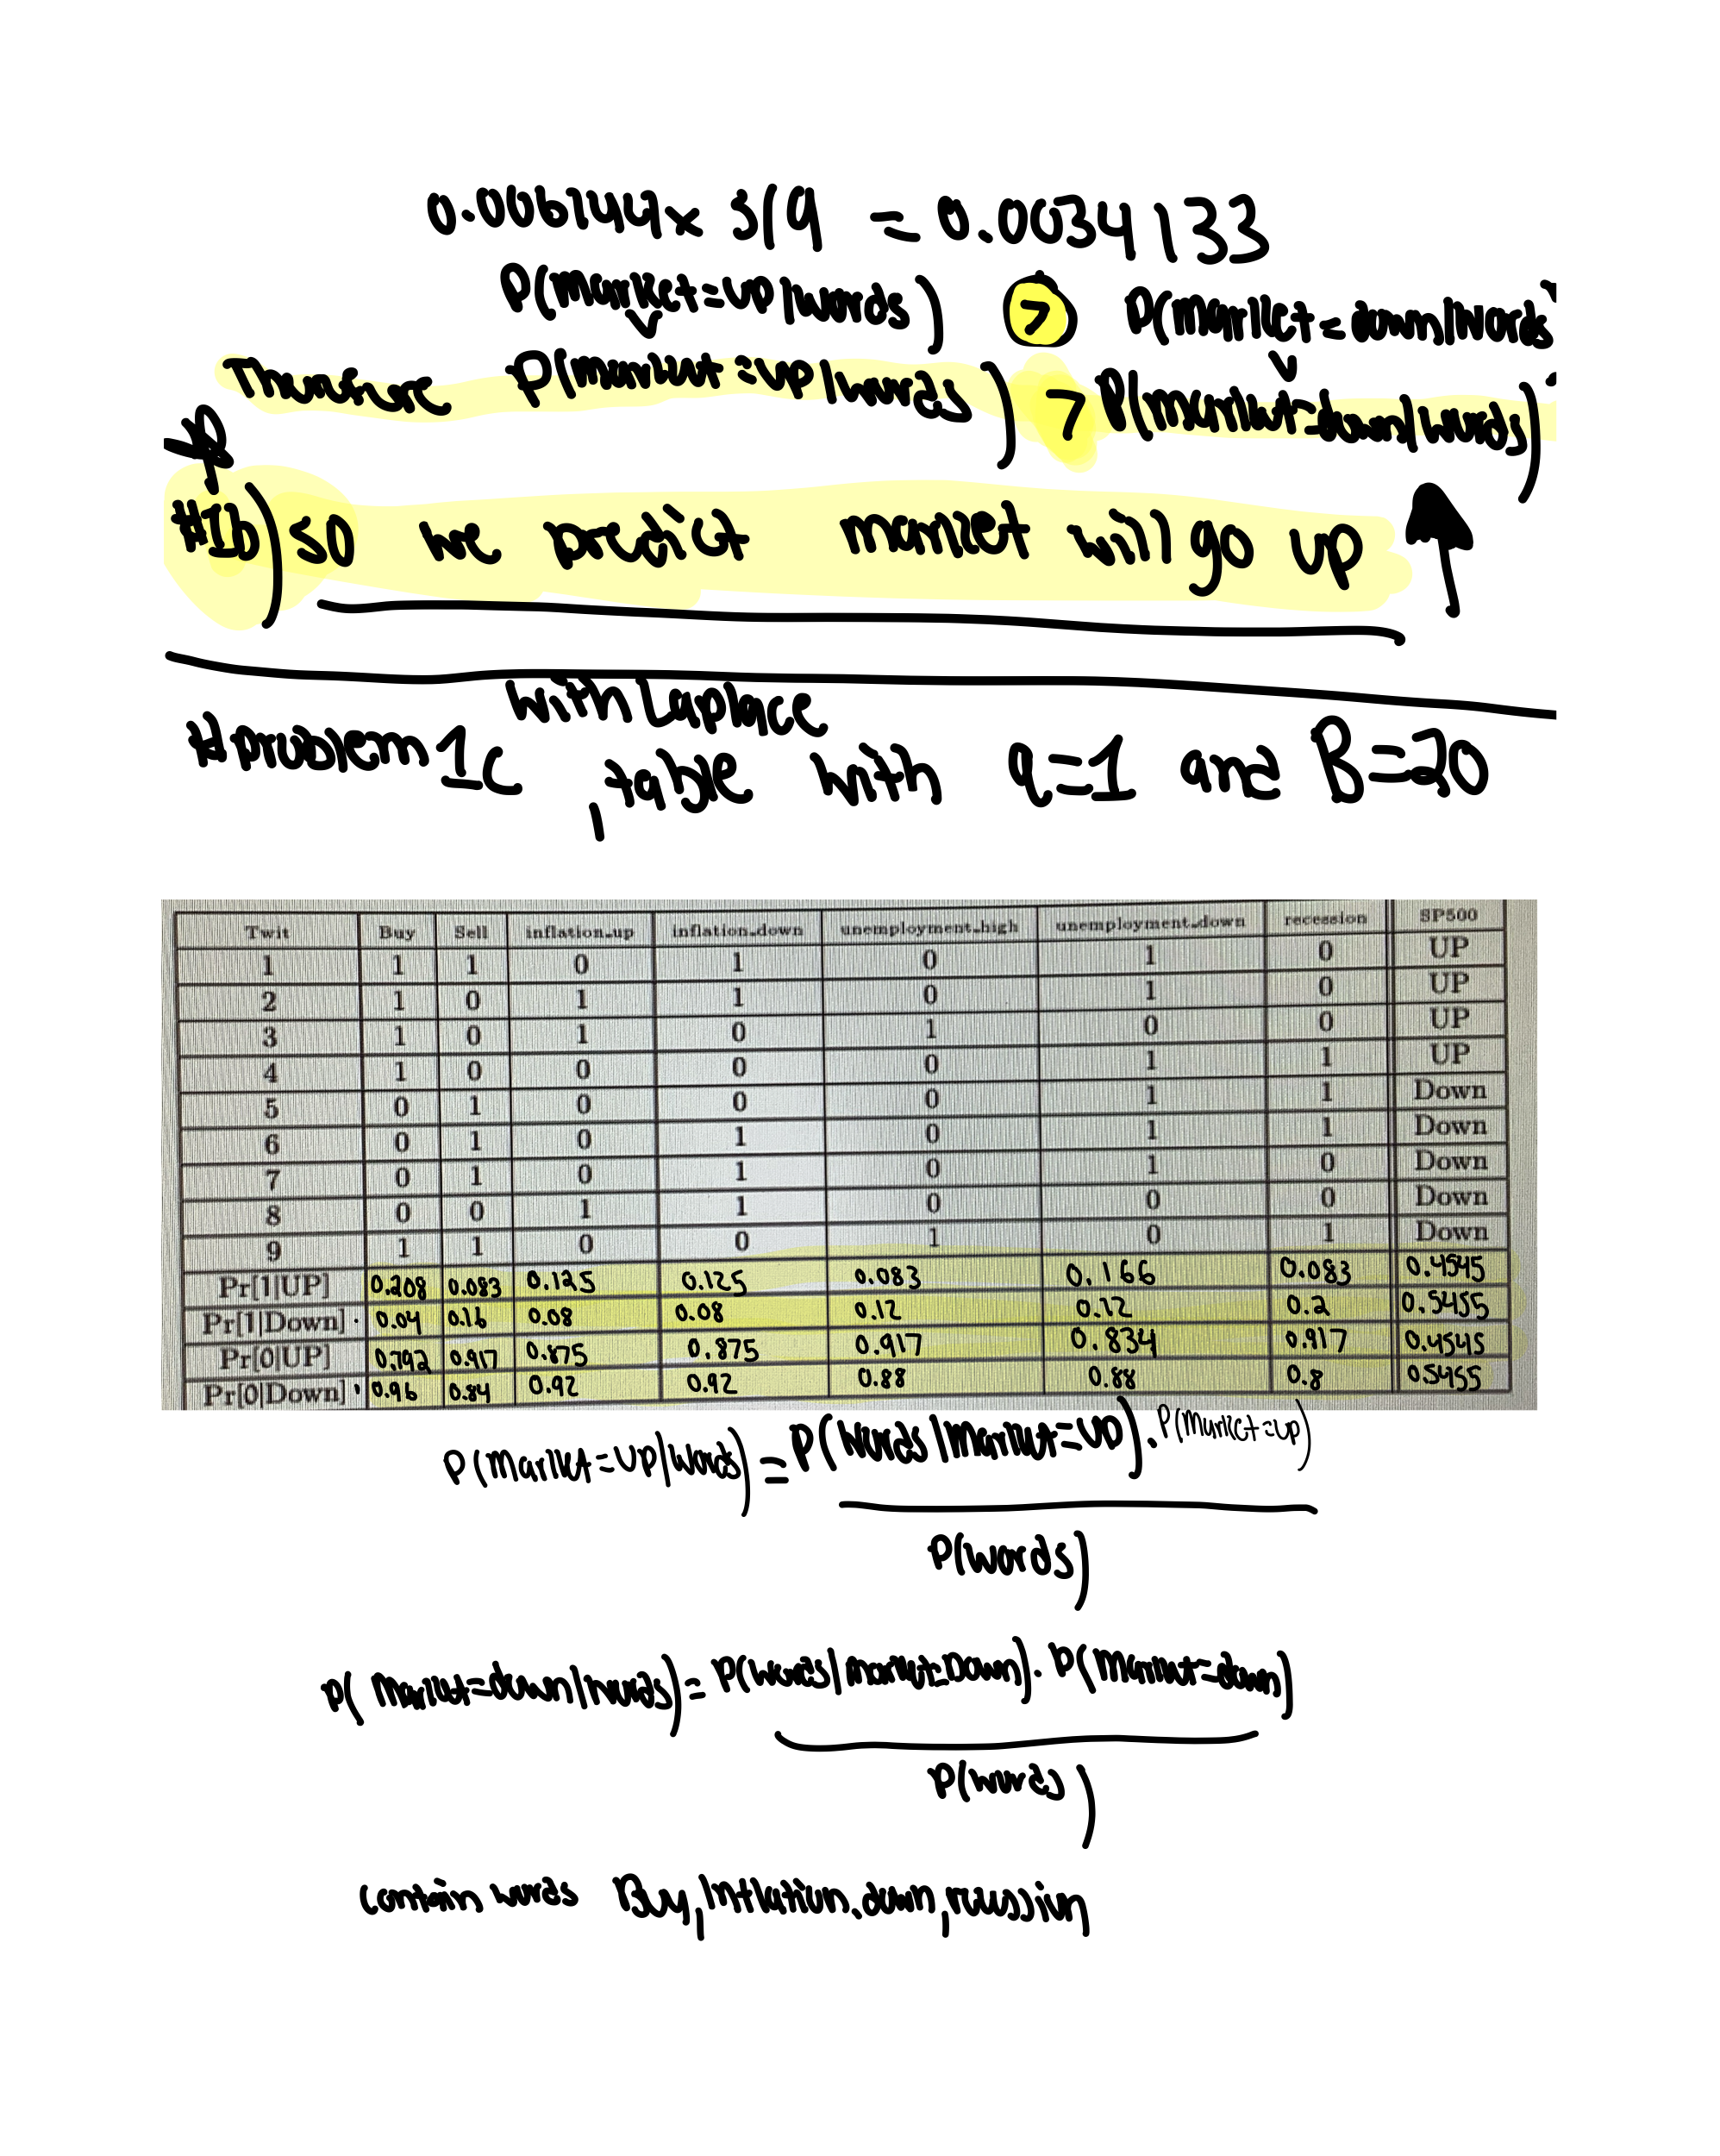 0.006144x 5/9 = 0.0034133
P(Market=up/words) > P(Market=down/words)
Therefore P(market=up/words) > P(market=down/words)
#1b) so we predict market will go up
with Laplace
#problem 1c, table with a=1 and B=20
Twit Buy Sell inflation_up inflation_down unemployment_high unemployment_down recession SP500
1 1 1 0 1 0 1 0 UP
2 1 0 1 1 0 1 0 UP
3 1 0 1 0 1 0 0 UP
4 1 0 0 0 0 1 1 UP
5 0 1 0 0 0 1 1 Down
6 0 1 0 1 0 1 1 Down
7 0 1 0 1 0 1 0 Down
8 0 0 1 1 0 0 0 Down
9 1 1 0 0 1 0 1 Down
Pr[1|UP] 0.208 0.083 0.125 0.125 0.083 0.166 0.083 0.4545
Pr[1|Down] 0.04 0.16 0.08 0.08 0.12 0.12 0.2 0.5455
Pr[0|UP] 0.792 0.917 0.875 0.875 0.917 0.834 0.917 0.4545
Pr[0|Down] 0.96 0.84 0.92 0.92 0.88 0.88 0.8 0.5455
P(Market=UP/Words) = P(Words/Market=UP) . P(Market=up)
P(words)
P(Market=down/words) = P(words/market=Down) . P(Market=down)
P(words)
contain words Buy, Inflation.down, recession